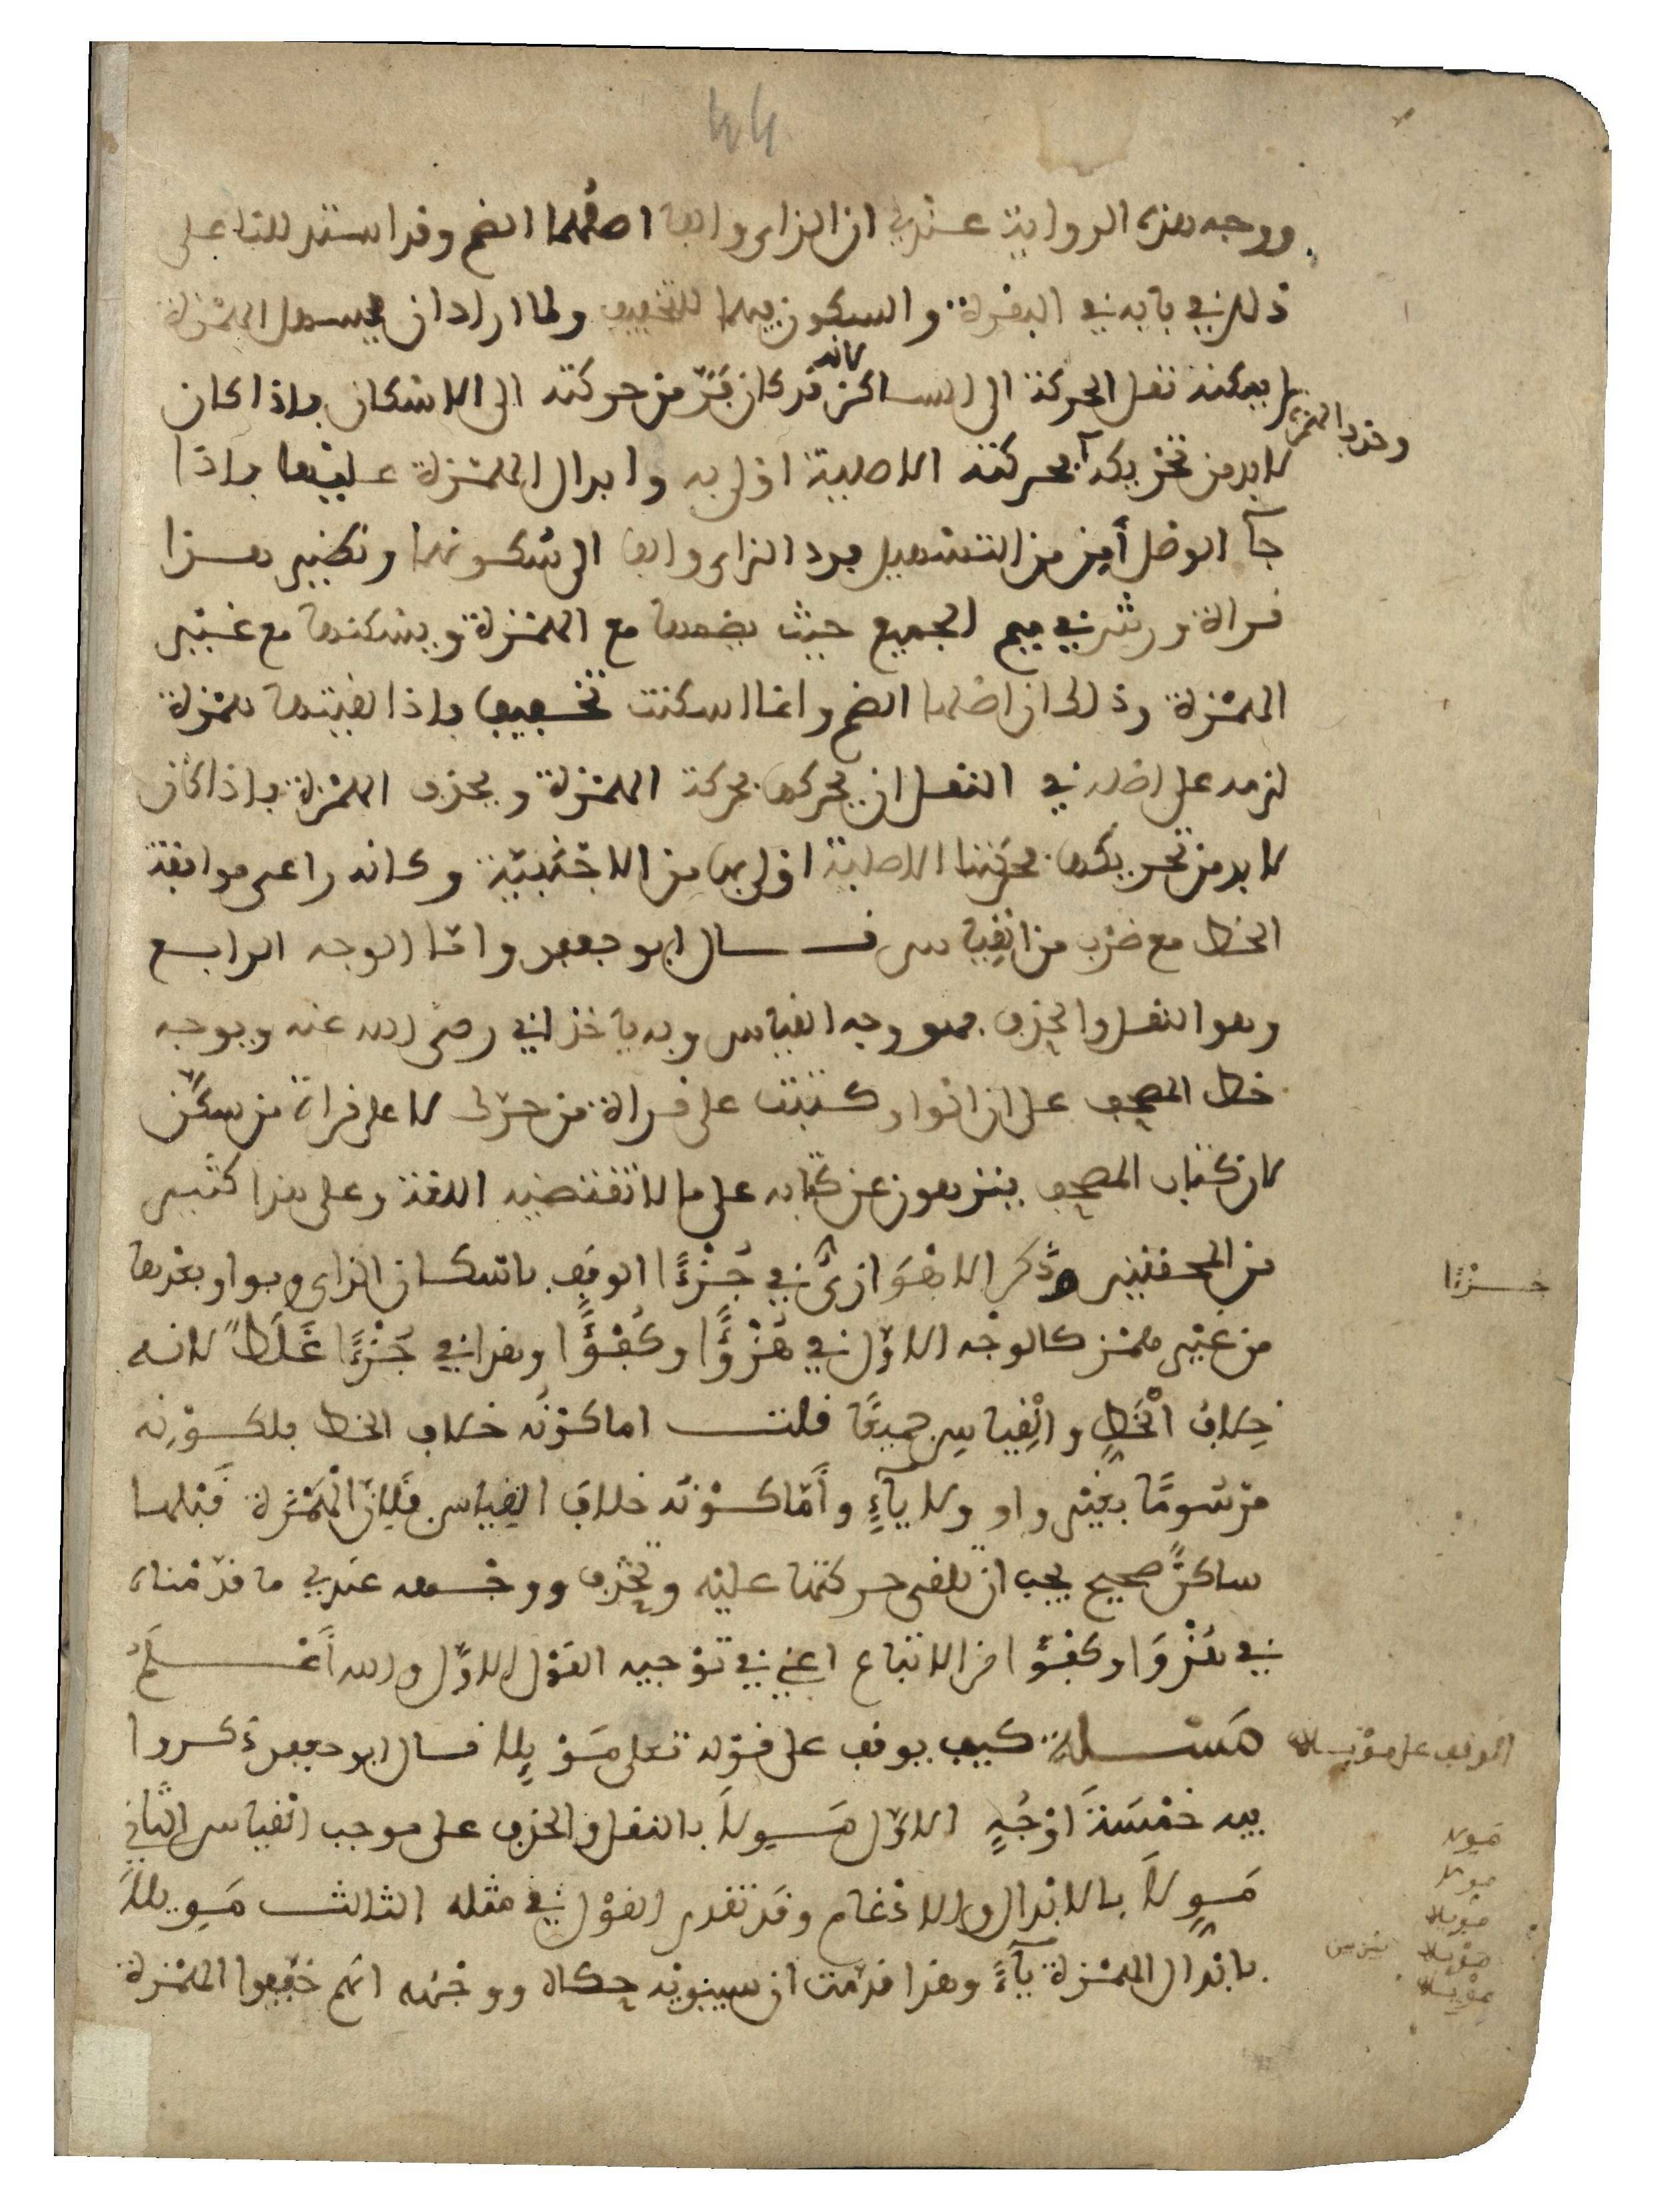 44
ووجه هذه الرواية عندي ان الزاى والفا اصلهما الضم وقد استدللنا على
ذلك في بابه في البقرة والسكون فيهما للتخفيف ولما اراد ان يسهل الهمزة
لم يمكنه نقل الحركة الى الساكن لانه قد كان فر من حركته الى الاسكان فاذا كان
وحذف الهمزة
لا بد من تحريكه فحركته الاصلية اولى به وابدال الهمزة عليها فاذا
جآ الوصل أمِن من التسهيل فرد الزاى والفا الى سكونهما ونظير هذا
قراة ورش في ميم الجميع حيث يضمها مع الهمزة ويسكنها مع غير
الهمزة وذلك ان اصلها الضم وانما اسكنت تخفيفا فاذا لقيتها همزة
لزمه على اصله في النقل ان يحركها بحركة الهمزة ويحذف الهمزة فاذا كان
لا بد من تحريكها فحركتها الاصلية اولى بها من الاجنبيّة وكانه راعى موافقة
الخط مع ضرب من القِياس قال ابو جعفر وامّا الوجه الرابع
وهو النقل والحذف فهو وجه القياس وبه ياخذ ابي رضى الله عنه ويوجه
خط المصحف على ان الواو كتبت على قراة من حرّك لا على قراة من سكّن
لان كتاب المصحف ينزهون عن كتابه على ما لا تقتضيه اللغة وعلى هذا كثير
من المحققين وذكر الاهْوَازيُّ في جُزْءًا الوقف باسكان الزاى وبواو بعدها
جزءًا
من غير همْز كالوجْه الاوّل في هُزْؤًا وكُفْؤًا وهذا في جُزْءًا غَلَطٌ لانه
خِلافُ الْخَطِّ والْقِياسِ جميعًا قلت اما كوْنُه خلاف الخط فلكوْنِه
مرْسُومًا بغيْر واو ولا يآءٍ وأمّا كوْنُه خلافَ القِياس فَلِانَّ الْهَمْزة قبْلها
ساكنٌ صحيح يجب ان تلقى حركتها عليْه وتحْذف ووجْهه عندي ما قدّمْناه
في هُزْوًا وكُفْؤًا من الاتباع اعني في توْجيه القوْل الاوّل والله أعْلَمُ
مَسْـلة كيف يوقف على قوْله تعلى مَوْيِلا قال ابو جعفر ذكروا
الوقف على موْيلا
فيه خمْسَةَ اوْجُهٍ الاوّل مَوِلَا بالنقل والحذف على موجب القياس الثّاني
مَوِلا
مَوِّلَا بالابْدال والادْغام وقد تقدم القوْل في مثله الثالث مَوِيلَا
مَوِّلا
مَوِيلا
بابْدال الهمْزة يآءً وهذا قدمْت ان سيبويْه حكاه ووجْهُه انهم خفّفوا الهمْزة